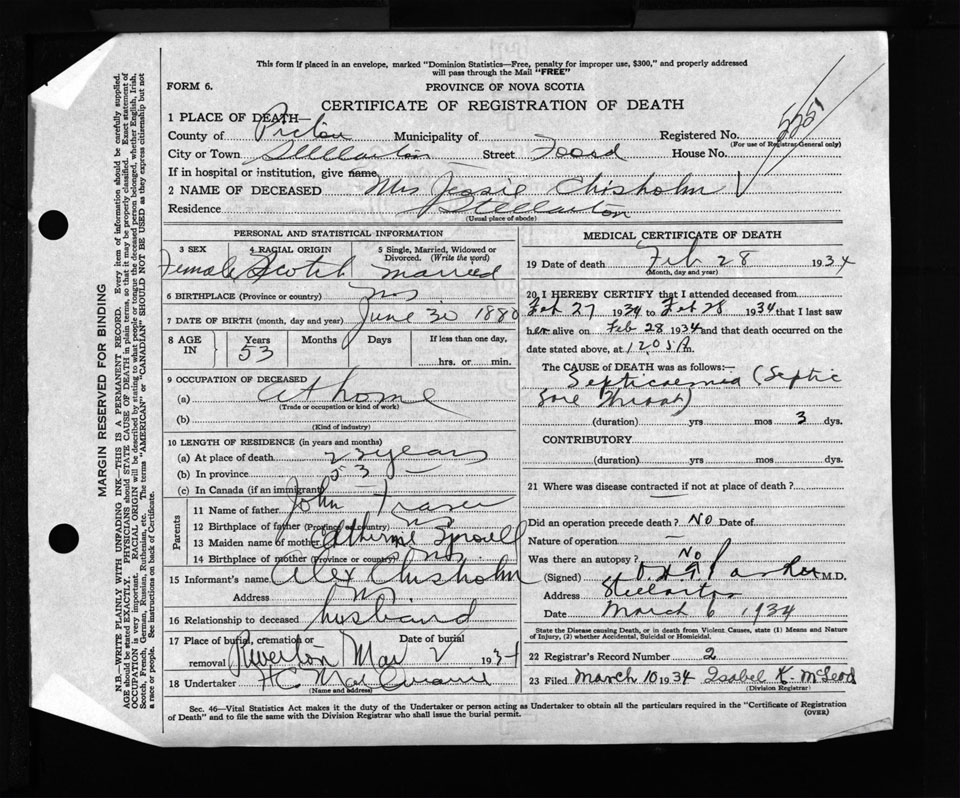 This form if placed in an envelope, marked "Dominion Statistics—Free, penalty for improper use, $300," and properly addressed
will pass through the Mail "FREE"
FORM 6.
PROVINCE OF NOVA SCOTIA
CERTIFICATE OF REGISTRATION OF DEATH
1 PLACE OF DEATH—
County of Pictou Municipality of Registered No.
(For use of Registrar General only)
City or Town Stellarton Street Foord House No.
If in hospital or institution, give name,
2 NAME OF DECEASED Mrs Jessie Chisholm
Residence Stellarton
(Usual place of abode)
PERSONAL AND STATISTICAL INFORMATION
3 SEX 4 RACIAL ORIGIN 5 Single, Married, Widowed or
Divorced. (Write the word)
Female Scotch Married
6 BIRTHPLACE (Province or country) NS
7 DATE OF BIRTH (month, day and year) June 30 1880
8 AGE IN Years Months Days If less than one day,
53 hrs. or min.
9 OCCUPATION OF DECEASED
(a) at home
(Trade or occupation or kind of work)
(b)
(Kind of industry)
10 LENGTH OF RESIDENCE (in years and months)
(a) At place of death 23 years
(b) In province 53 —
(c) In Canada (if an immigrant) —
Parents
11 Name of father John Fraser
12 Birthplace of father (Province or country) NS
13 Maiden name of mother Catherine Sproull
14 Birthplace of mother (Province or country) NS
15 Informant's name Alex Chisholm
Address NS
16 Relationship to deceased husband
17 Place of burial, cremation or Date of burial
removal Riverton Mar 2 1934
18 Undertaker
(Name and address)
MEDICAL CERTIFICATE OF DEATH
19 Date of death Feb 28 1934
(Month, day and year)
20 I HEREBY CERTIFY that I attended deceased from
Feb 27 1934 to Feb 28 1934 that I last saw
her alive on Feb 28 1934 and that death occurred on
date stated above, at 1205 A m.
The CAUSE OF DEATH was as follows:—
Septicaemia (Septic
Sore Throat)
(duration) yrs mos 3 dys.
CONTRIBUTORY
(duration) yrs mos dys.
21 Where was disease contracted if not at place of death?
Did an operation precede death? No Date of
Nature of operation —
Was there an autopsy? No
(Signed) Parker M.D.
Address Stellarton
Date March 6 1934
State the Disease causing Death, or in death from Violent Causes, state (1) Means and Nature
of Injury, (2) whether Accidental, Suicidal or Homicidal.
22 Registrar's Record Number 2
23 Filed March 10 1934 Isabel K. McLeod
(Division Registrar)
Sec. 46—Vital Statistics Act makes it the duty of the Undertaker or person acting as Undertaker to obtain all the particulars required in the "Certificate of Registration
of Death" and to file the same with the Division Registrar who shall issue the burial permit.
(OVER)
MARGIN RESERVED FOR BINDING
N.B.—WRITE PLAINLY WITH UNFADING INK—THIS IS A PERMANENT RECORD. Every item of information should be carefully supplied.
AGE should be stated EXACTLY. PHYSICIANS should STATE CAUSE OF DEATH in plain terms, so that it may be properly classified. Exact statement of
OCCUPATION is very important. RACIAL ORIGIN will be described by stating to what people or tongue the deceased person belonged, whether English, Irish,
Scotch, French, German, Russian, Ruthenian, etc. The terms "AMERICAN" or "CANADIAN" SHOULD NOT BE USED as they express citizenship but not
a race or people. See instructions on back of Certificate.